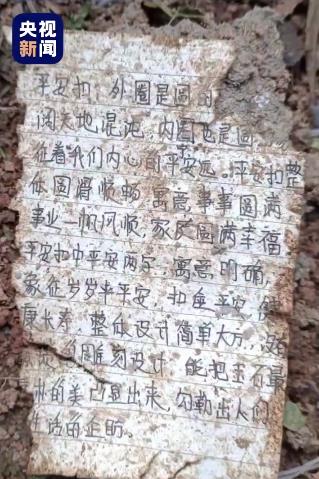 央视新闻
平安扣，外圈是圆的
阔天地混沌，内圈也是圆，
征着我们内心的平安远。平安扣整
体圆滑顺畅，寓意事事圆满
事业一帆风顺，家庭圆满幸福
平安扣中平安两字，寓意明确，
象征岁岁年平安，扣住平安，健
康长寿，整体设计简单大方，
周雕刻设计，能把玉石最
的美凸显出来，勾勒出人们
生活的企盼。